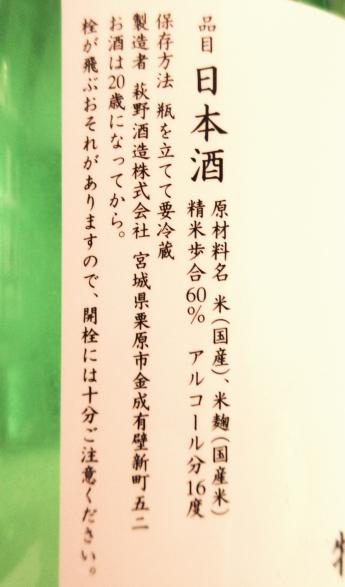 品目 日本酒
原材料名 米（国産）、米麹（国産米）
精米歩合60% アルコール分16度
保存方法 瓶を立てて要冷蔵
製造者 萩野酒造株式会社 宮城県栗原市金成有壁新町五二
お酒は20歳になってから。
栓が飛ぶおそれがありますので、開栓には十分ご注意ください。